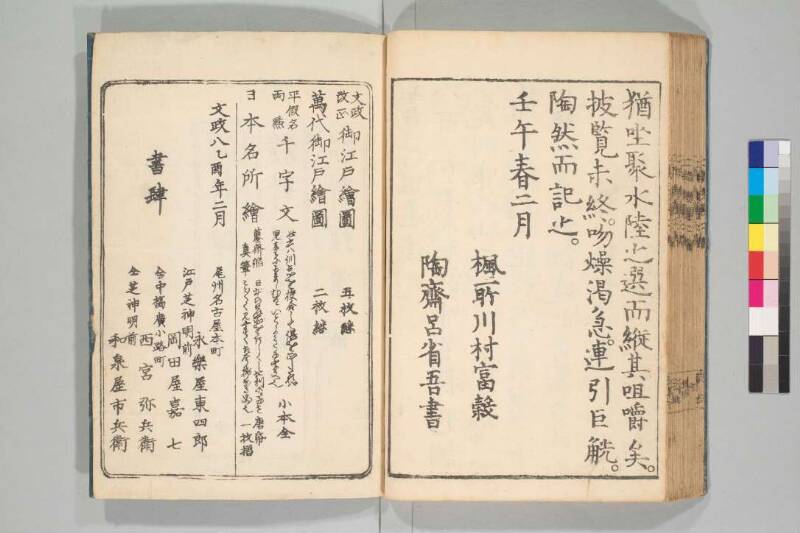 猶坐聚水陸之選而縱其咀嚼矣。
披覽未終。吻燥渴急。連引巨觥。
陶然而記之。
壬午春二月
楓所川村富穀
陶齋呂省吾書
文政改正 御江戸繪圖 五枚継
萬代御江戸繪圖 二枚継
平假名両點 千字文 小本全
日本名所繪 一枚摺
文政八乙酉年二月
書肆
尾州名古屋本町
永樂屋東四郎
江戸芝神明前
岡田屋嘉七
仝中橋廣小路町
西宮弥兵衛
仝芝神明前
和泉屋市兵衛